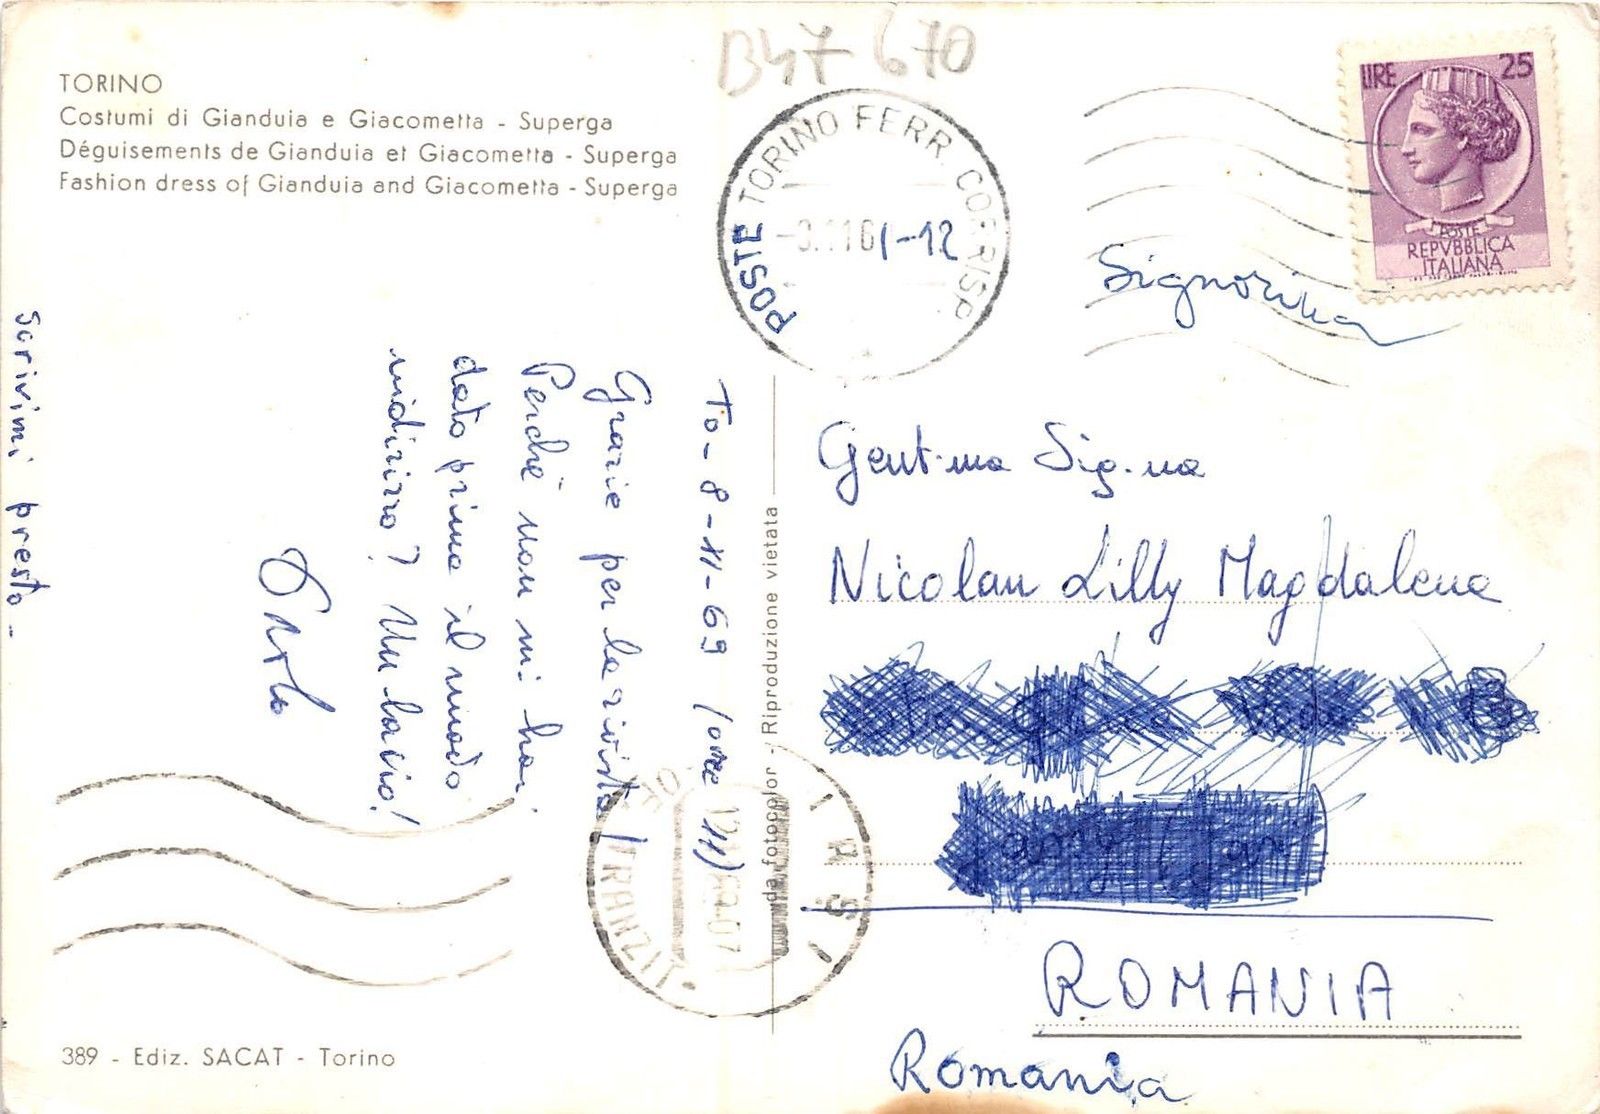 B47-670
TORINO
Costumi di Gianduia e Giacometta - Superga
Déguisements de Gianduia et Giacometta - Superga
Fashion dress of Gianduia and Giacometta - Superga
POSTE TORINO FERR. CORRISP.
-12
LIRE 25
POSTE
REPVBBLICA
ITALIANA
Signorina
To - 8-11-69 (ore 11)
Grazie per la rivista!
Perché non mi hai
dato prima il nuodo
indirizzo? Un bacio!
Scrivimi presto -
Gent.ma Sig.na
Nicolau Lilly Magdalena
ROMANIA
Romania
da fotocolor - Riproduzione vietata
389 - Ediz. SACAT - Torino